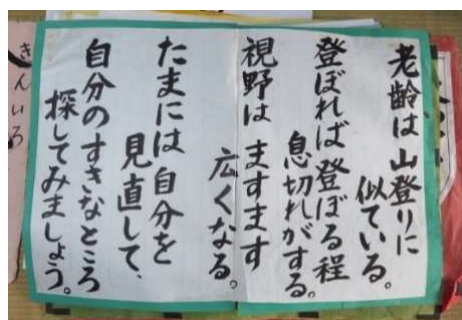 老齢は山登りに
似ている。
登ぼれば登ぼる程
息切れがする。
視野は ますます
広くなる。
たまには自分を
見直して、
自分のすきなところ
探してみましょう。
きんいろ